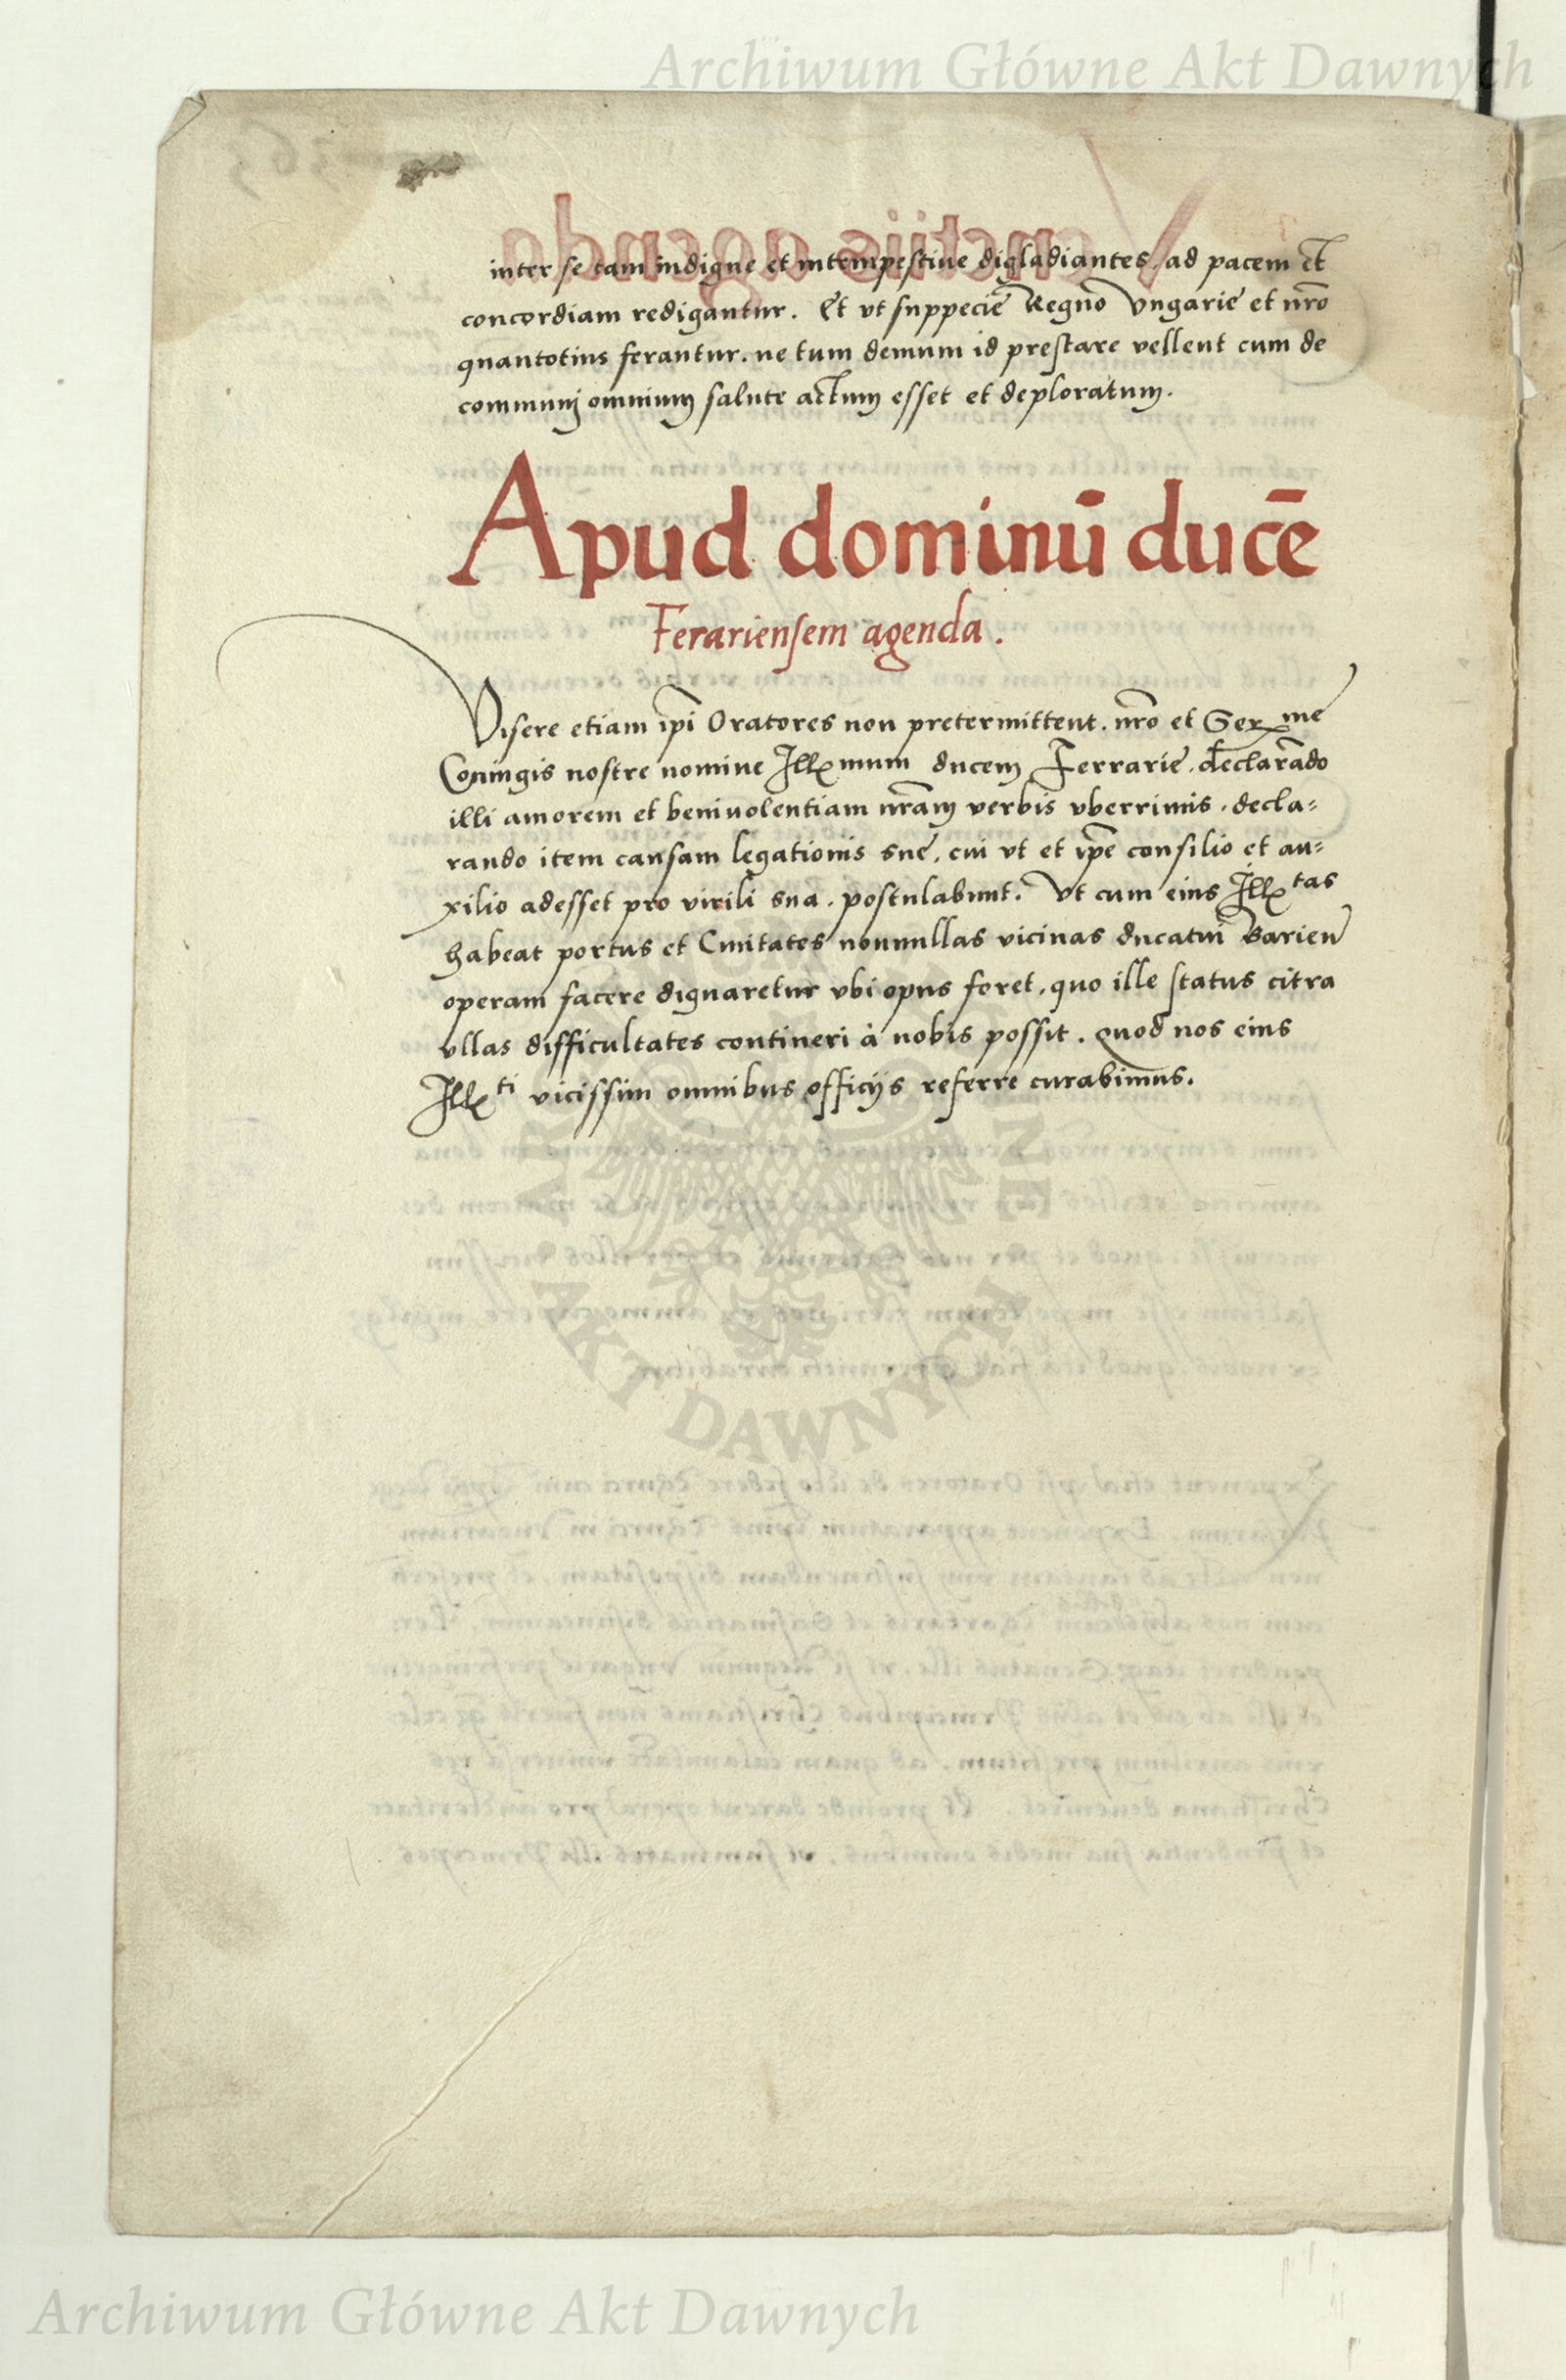 Archiwum Główne Akt Dawnych
inter se tam indigne et intempestiue digladiantes, ad pacem et
concordiam redigantur. Et vt suppecie Regno Vngarie et nr̃o
quantotius ferantur. ne tum demum id prestare vellent cum de
communi omnium salute actum esset et deploratum.
Apud dominū ducē
Ferariensem agenda.
Visere etiam ip̃i Oratores non pretermittent. nr̃o et Ser me
Coniugis nostre nomine Ill mum ducem Ferrarie. declarãdo
illi amorem et beniuolentiam nr̃am verbis vberrimis. decla=
rando item causam legationis sue, cui vt et ip̃e consilio et au=
xilio adesset pro virili sua. postulabunt. Vt cum eius Ill tas
habeat portus et Ciuitates nonnullas vicinas ducatui Barien
operam facere dignaretur vbi opus foret, quo ille status citra
vllas difficultates contineri à nobis possit. Quod nos eius
Ill ti vicissim omnibus officijs referre curabimus.
AKT DAWNYCH
Archiwum Główne Akt Dawnych